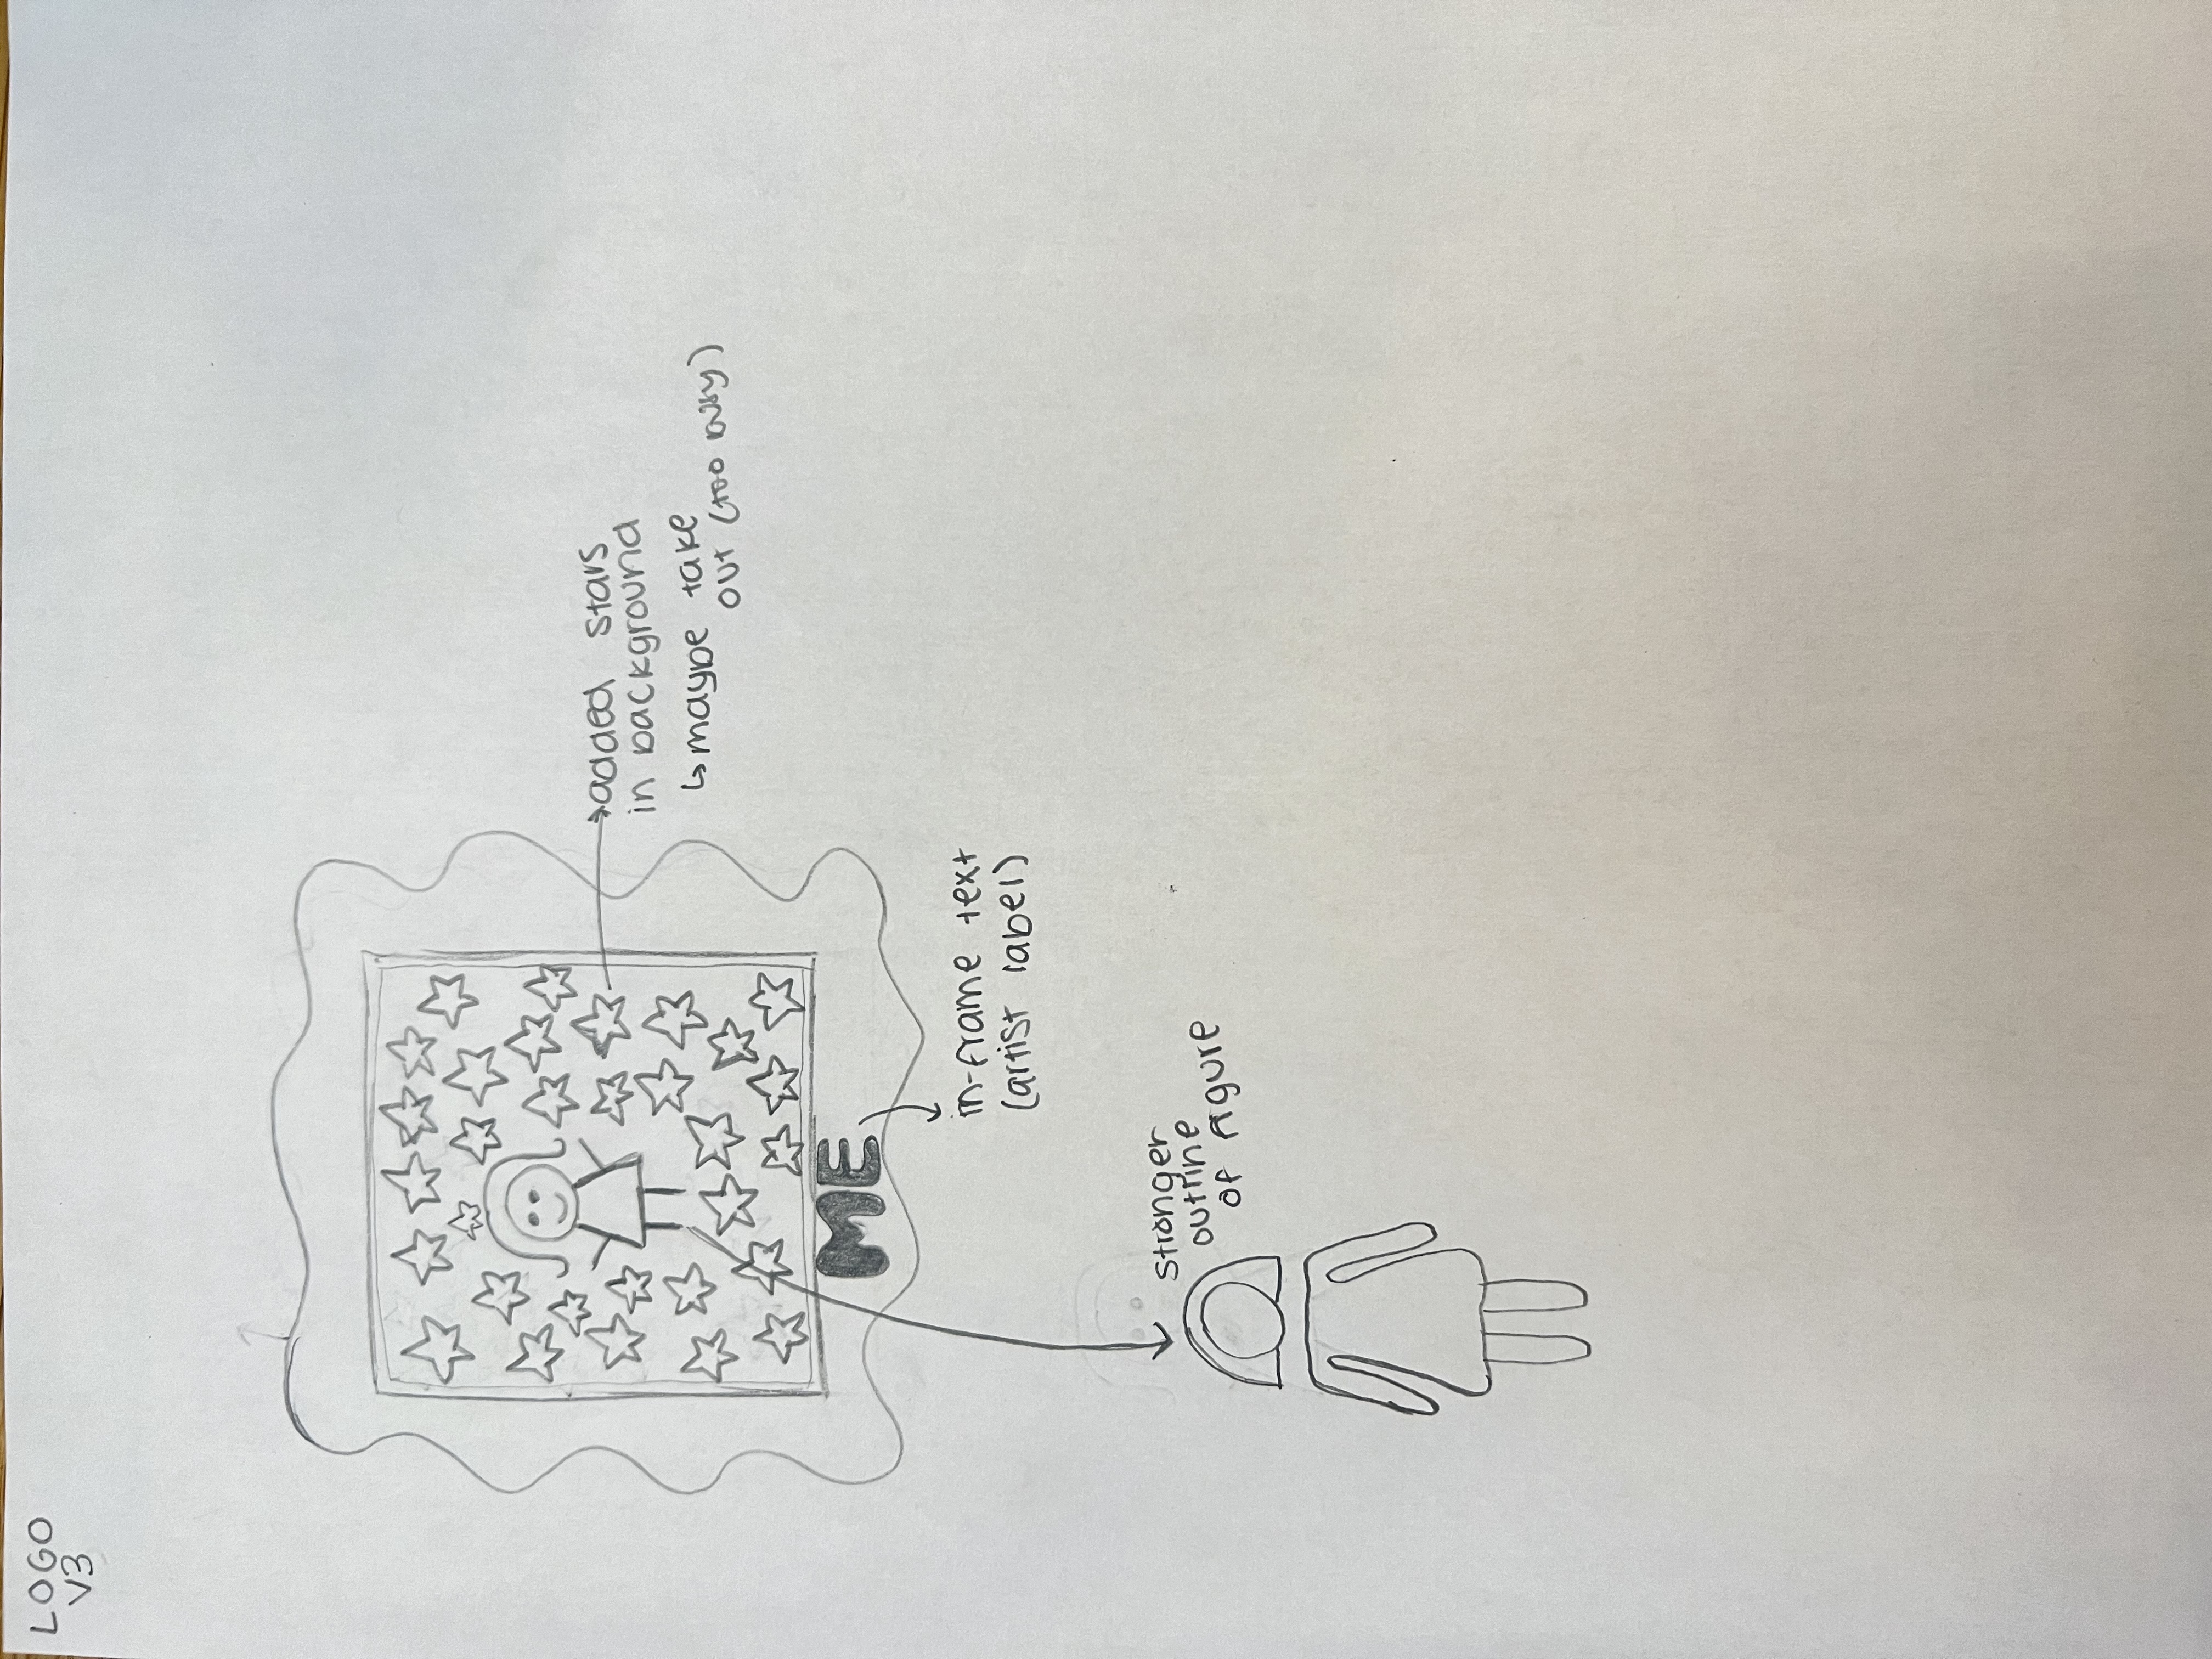 LOGO
V3
added stars
in background
↳ maybe take
out (too busy)
ME
in-frame text
(artist label)
stronger
outline
of figure